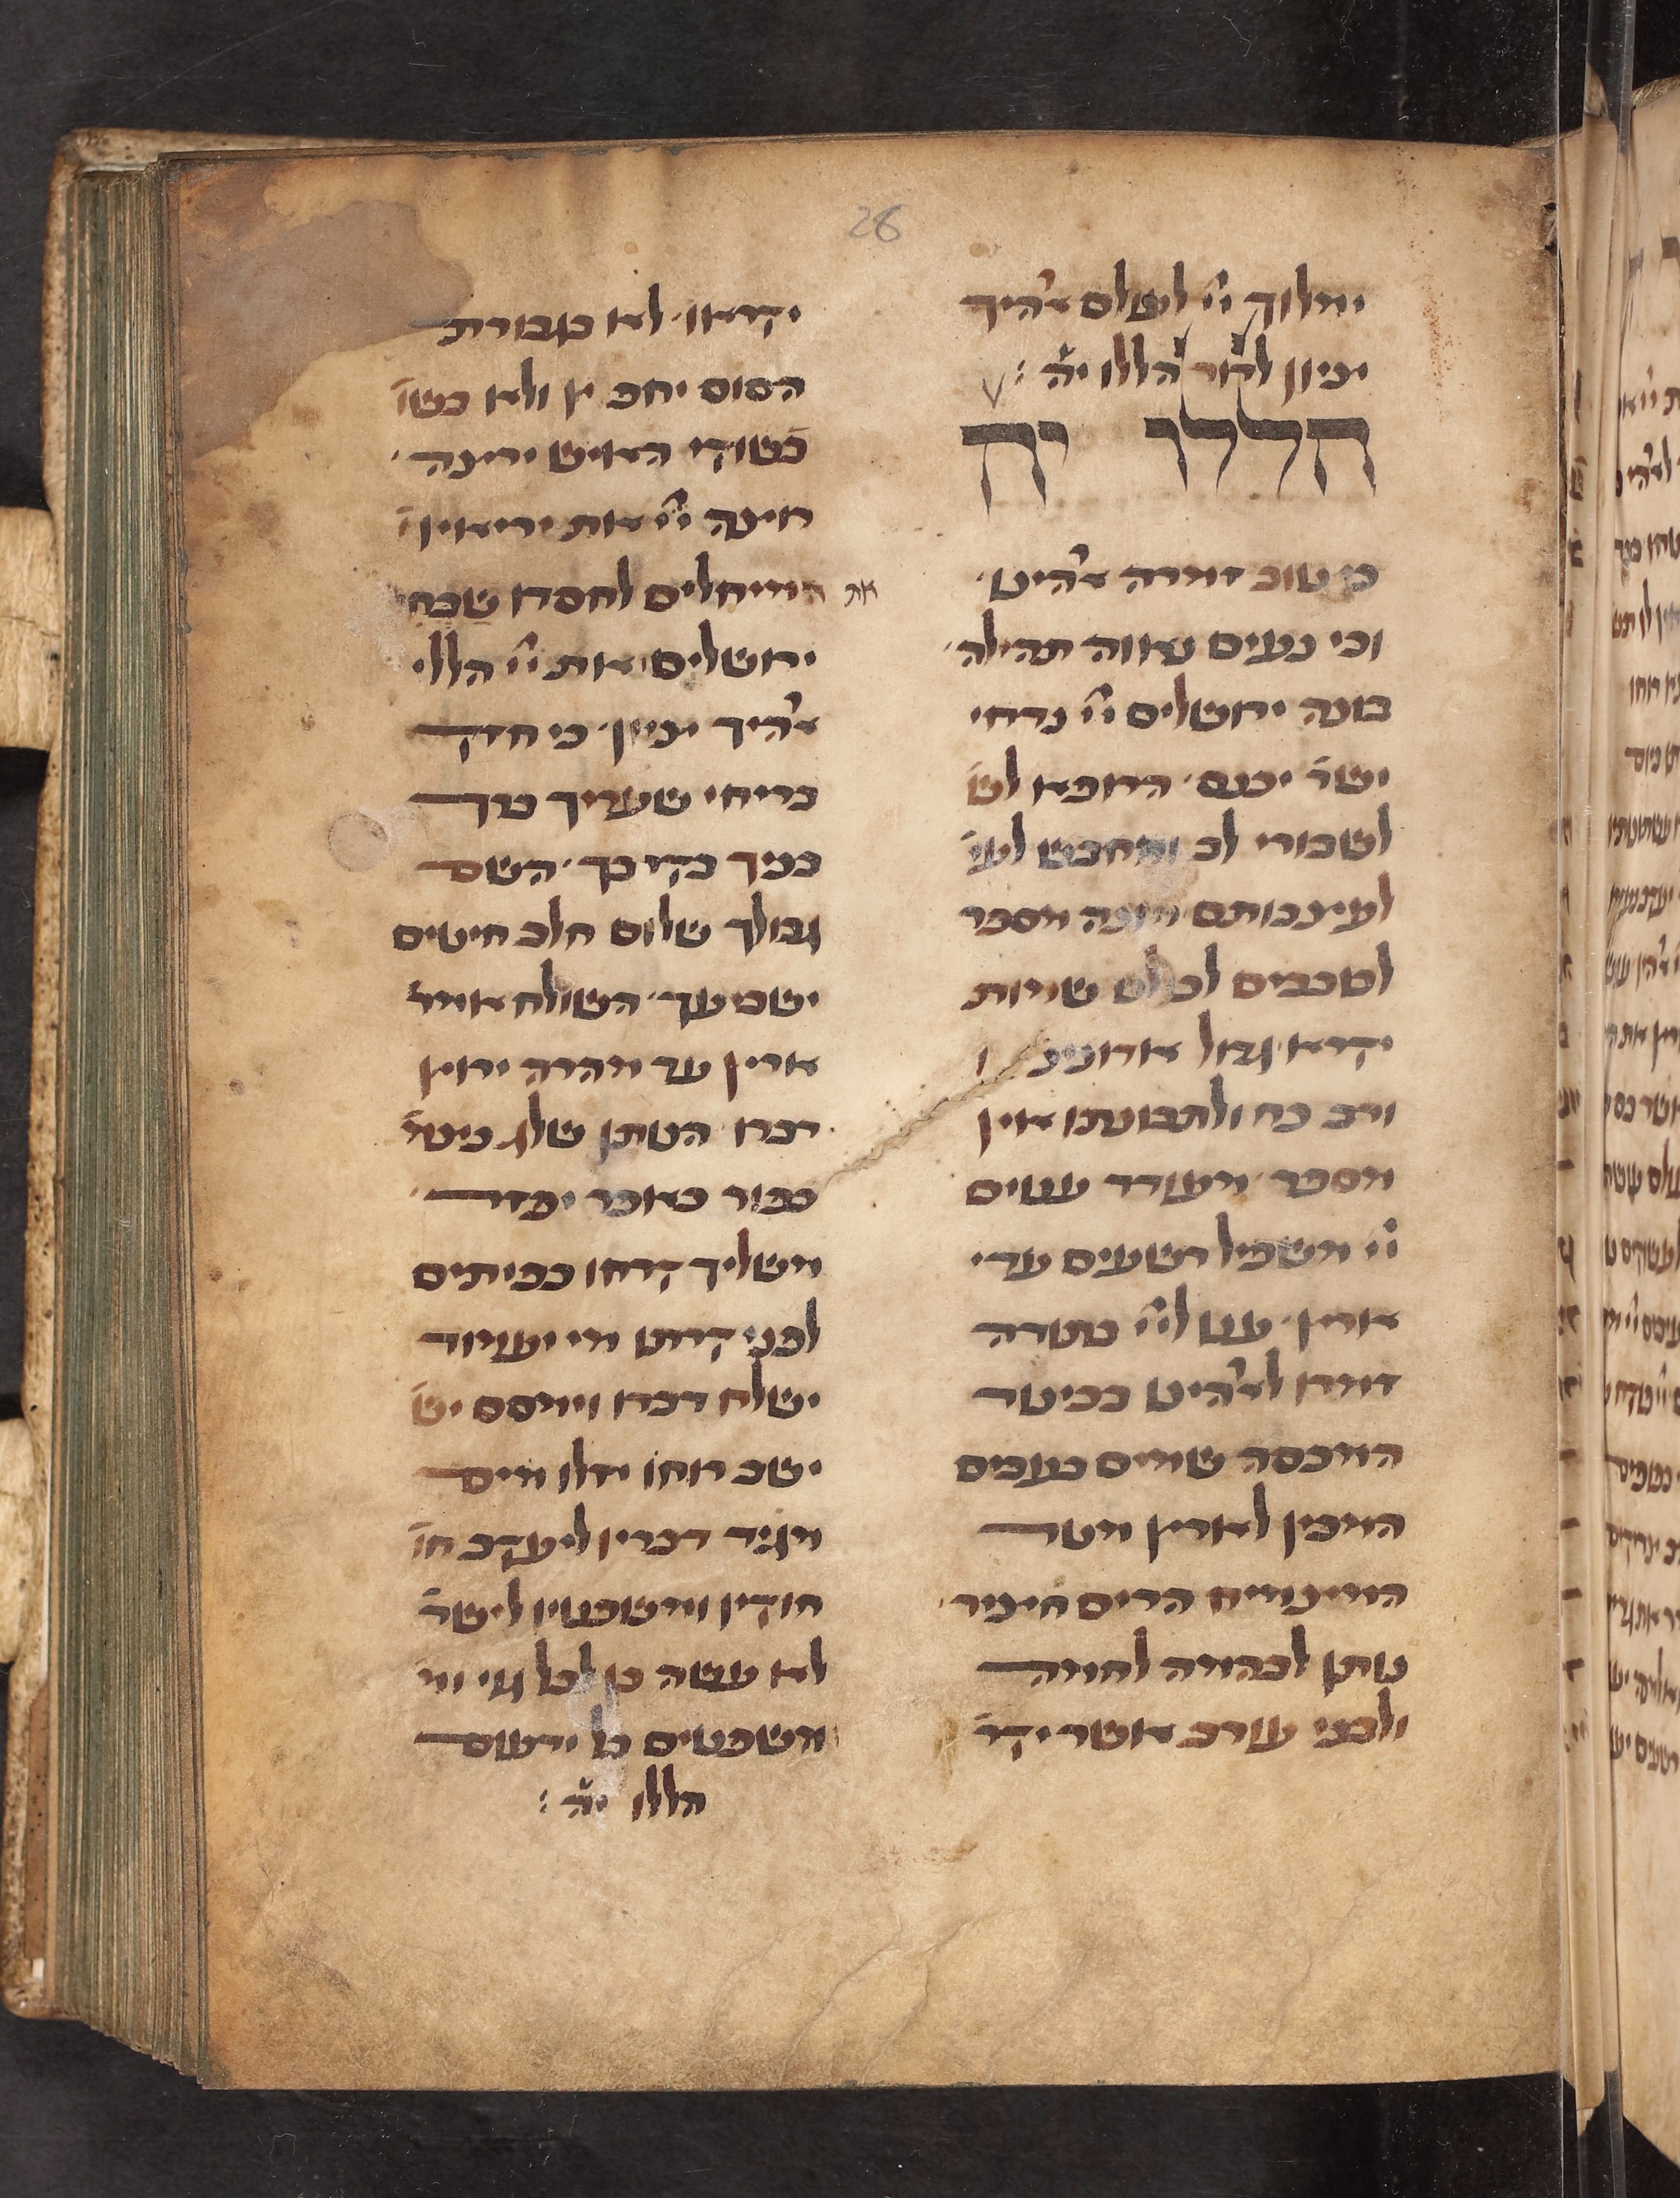 26
ימלוך יי לעולם א'היך
יציון לדור הללו יה :
הללו יה
כי טוב זמרה א'הינו
וכי נעים נאווה תהילה
בונה ירושלים יי נדחי
ישר יכנס הרופא לש
לשבורי לב ומחבש לעצ
לעיצבותם מונה מספר
לכוכבים לכולם שמות
יקרא גדול אדונינו
ורב כח ולתבונתו אין
מספר מעודד ענוים
יי משפיל רשעים עדי
ארץ ענו ליי בתודה
זמרו לא'הינו בכינור
המכסה שמים בעבים
המכין לארץ מטר
המיצמיח הרים חיציר
נותן לבהמה לחמה
ולבני עורב אשר יקר
יקראו לא בגבורת
הסוס יחפץ ולא בשו
בשוקי האיש ירצה
רוצה יי את יריאיו
את המיחלים לחסדו שבחי
ירושלים את יי הללי
א'היך יציון כי חזק
בריחי שעריך ברך
בניך בקירבך השם
גבולך שלום חלב חיטים
ישביעך השולח אימר
ארץ עד מהרה ירוץ
דברו הנותן שלג כצמר
כפור כאפר יפזר
משליך קרחו כפיתים
לפני קרתו מי יעמוד
ישלח דברו וימסם יש
ישב רוחו יזלו מים
מגיד דבריו ליעקב חו
חוקיו ומשפטיו לישר
לא עשה כן לכל גוי ומ
ומשפטים בל ידעום
הללו יה :